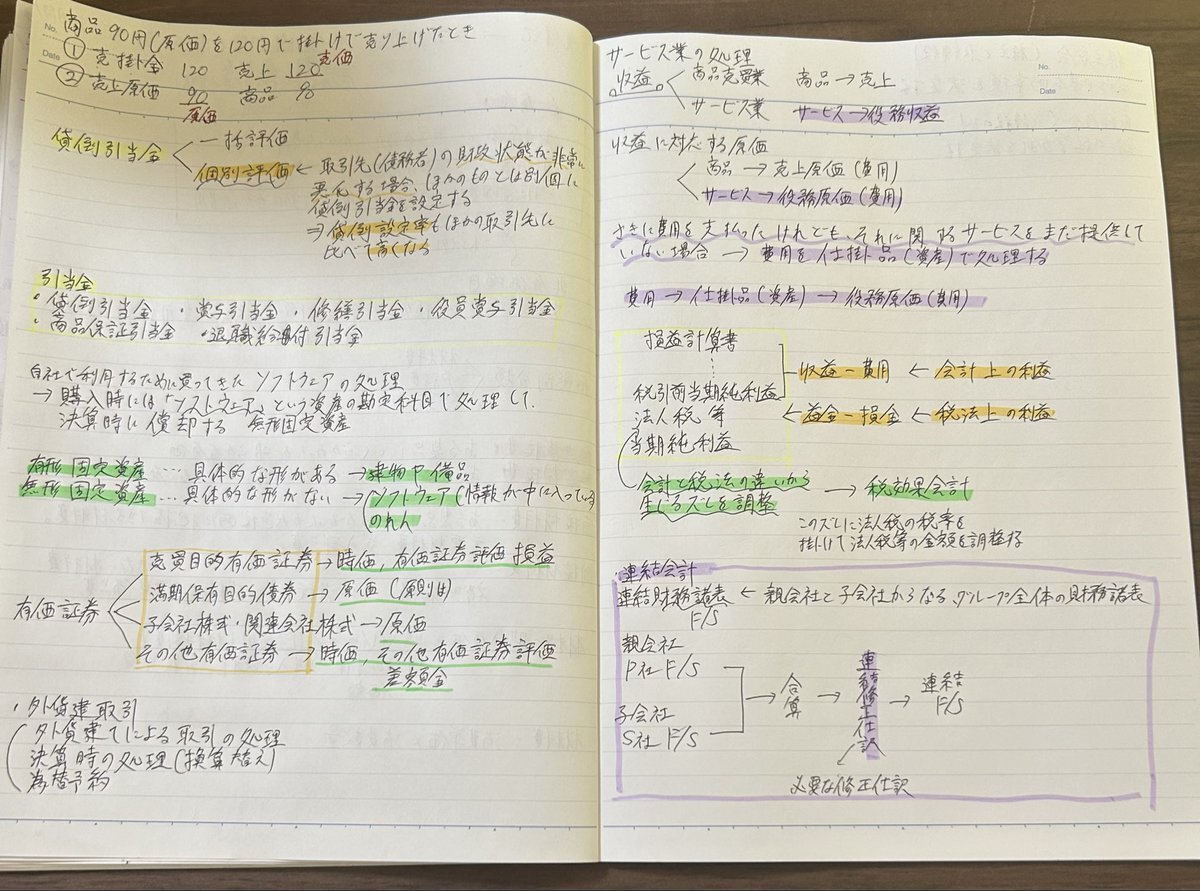 No.
Date
商品90円(原価)を120円で掛けで売り上げたとき
① 売掛金 120 売上 120 売価
② 売上原価 90 商品 90
原価
貸倒引当金
一括評価
個別評価 ← 取引先(債務者)の財政状態が非常に
悪化する場合、ほかのものとは別個に
貸倒引当金を設定する
⇒ 貸倒設定率もほかの取引先に
比べて高くなる
引当金
・貸倒引当金 ・賞与引当金 ・修繕引当金 ・役員賞与引当金
・商品保証引当金 ・退職給付引当金
自社で利用するために買ってきたソフトウェアの処理
→ 購入時には「ソフトウェア」という資産の勘定科目で処理して、
決算時に償却する 無形固定資産
有形固定資産 … 具体的な形がある → 建物や備品
無形固定資産 … 具体的な形がない → ソフトウェア(情報が中に入っている
のれん
有価証券
売買目的有価証券 → 時価、有価証券評価損益
満期保有目的債券 → 原価(原則は)
子会社株式・関連会社株式 → 原価
その他有価証券 → 時価、その他有価証券評価
差額金
・外貨建取引
外貨建てによる取引の処理
決算時の処理(換算替え)
為替予約
No.
Date
サービス業の処理
収益
商品売買業 商品 → 売上
サービス業 サービス → 役務収益
収益に対応する原価
商品 → 売上原価(費用)
サービス → 役務原価(費用)
さきに費用を支払ったけれども、それに関するサービスをまだ提供して
いない場合 → 費用を仕掛品(資産)で処理する
費用 → 仕掛品(資産) → 役務原価(費用)
損益計算書
⋮
税引前当期純利益
法人税等
当期純利益
収益 − 費用 ← 会計上の利益
益金 − 損金 ← 税法上の利益
会計と税法の違いから
生じるズレを調整 → 税効果会計
このズレに法人税の税率を
掛けて法人税等の金額を調整する
・連結会計
連結財務諸表 ← 親会社と子会社からなる、グループ全体の財務諸表
F/S
親会社
P社 F/S
子会社
S社 F/S
→ 合算 → 連結修正仕訳 → 連結F/S
必要な修正仕訳